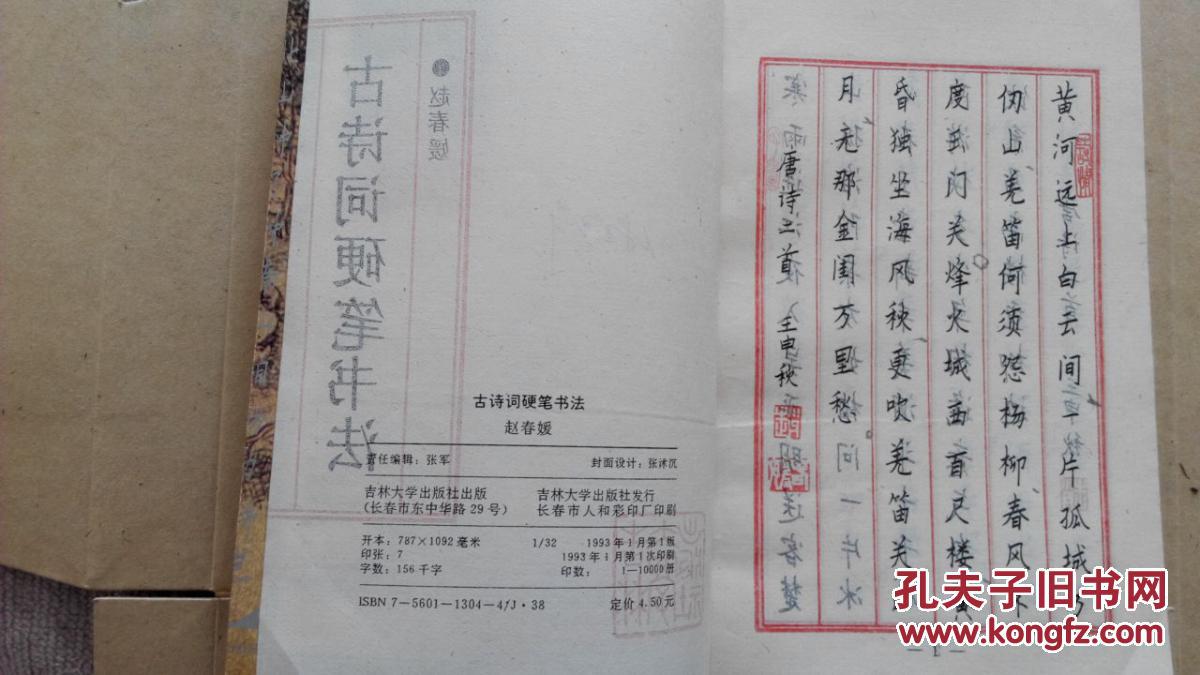 古诗词硬笔书法
赵春媛
古诗词硬笔书法
赵春媛
责任编辑：张军 封面设计：张沭沉
吉林大学出版社出版 吉林大学出版社发行
(长春市东中华路 29 号) 长春市人和彩印厂印刷
开本：787×1092 毫米 1/32 1993 年 1 月第 1 版
印张：7 1993 年 1 月第 1 次印刷
字数：156 千字 印数：1—10000 册
ISBN 7—5601—1304—4/J·38 定价 4.50 元
黄河远上白云间一片孤城万
仞山羌笛何须怨杨柳春风不
度玉门关烽火城西百尺楼黄
昏独坐海风秋更吹羌笛关
月无那金闺万里愁
唐诗二首 壬申秋
— 1 —
孔夫子旧书网
www.kongfz.com